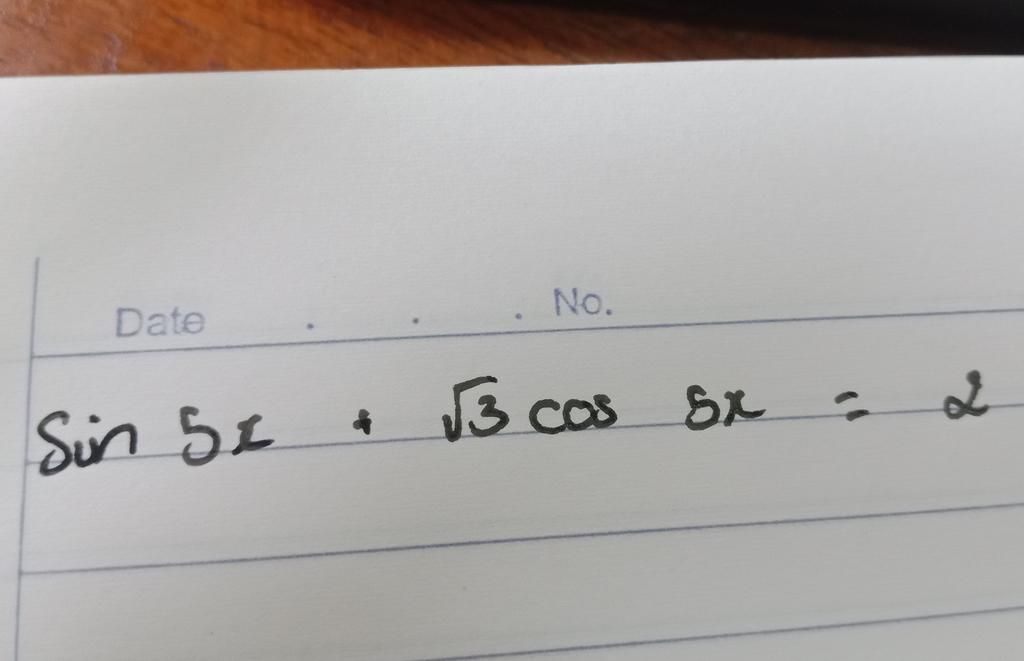 Date . . . No.
Sin 5x + √3 cos 5x = 2